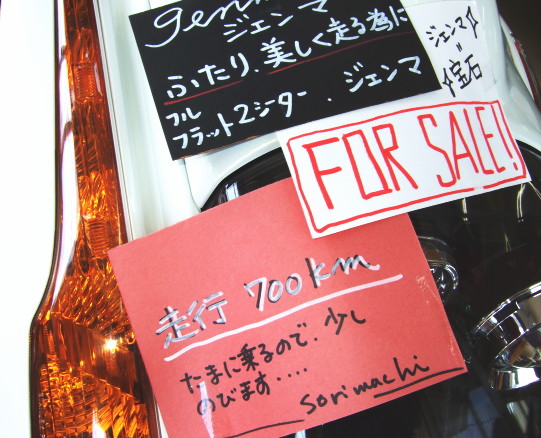 ジェンマ
ふたり、美しく走る為に
フル
フラット2シーター.ジェンマ
ジェンマⅡ
=
宝石
FOR SALE!
走行 700km
たまに乗るので、少し
のびます....
sorimachi